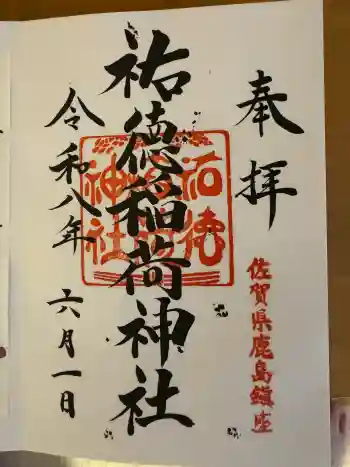 奉拝
佐賀県鹿島鎮座
祐徳稲荷神社
祐徳
神社
令和八年
六月一日